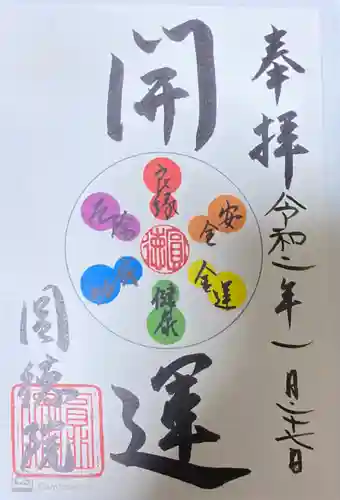 奉拝
令和二年一月二十七日
開運
良縁
安全
金運
健康
圓徳
圓徳院